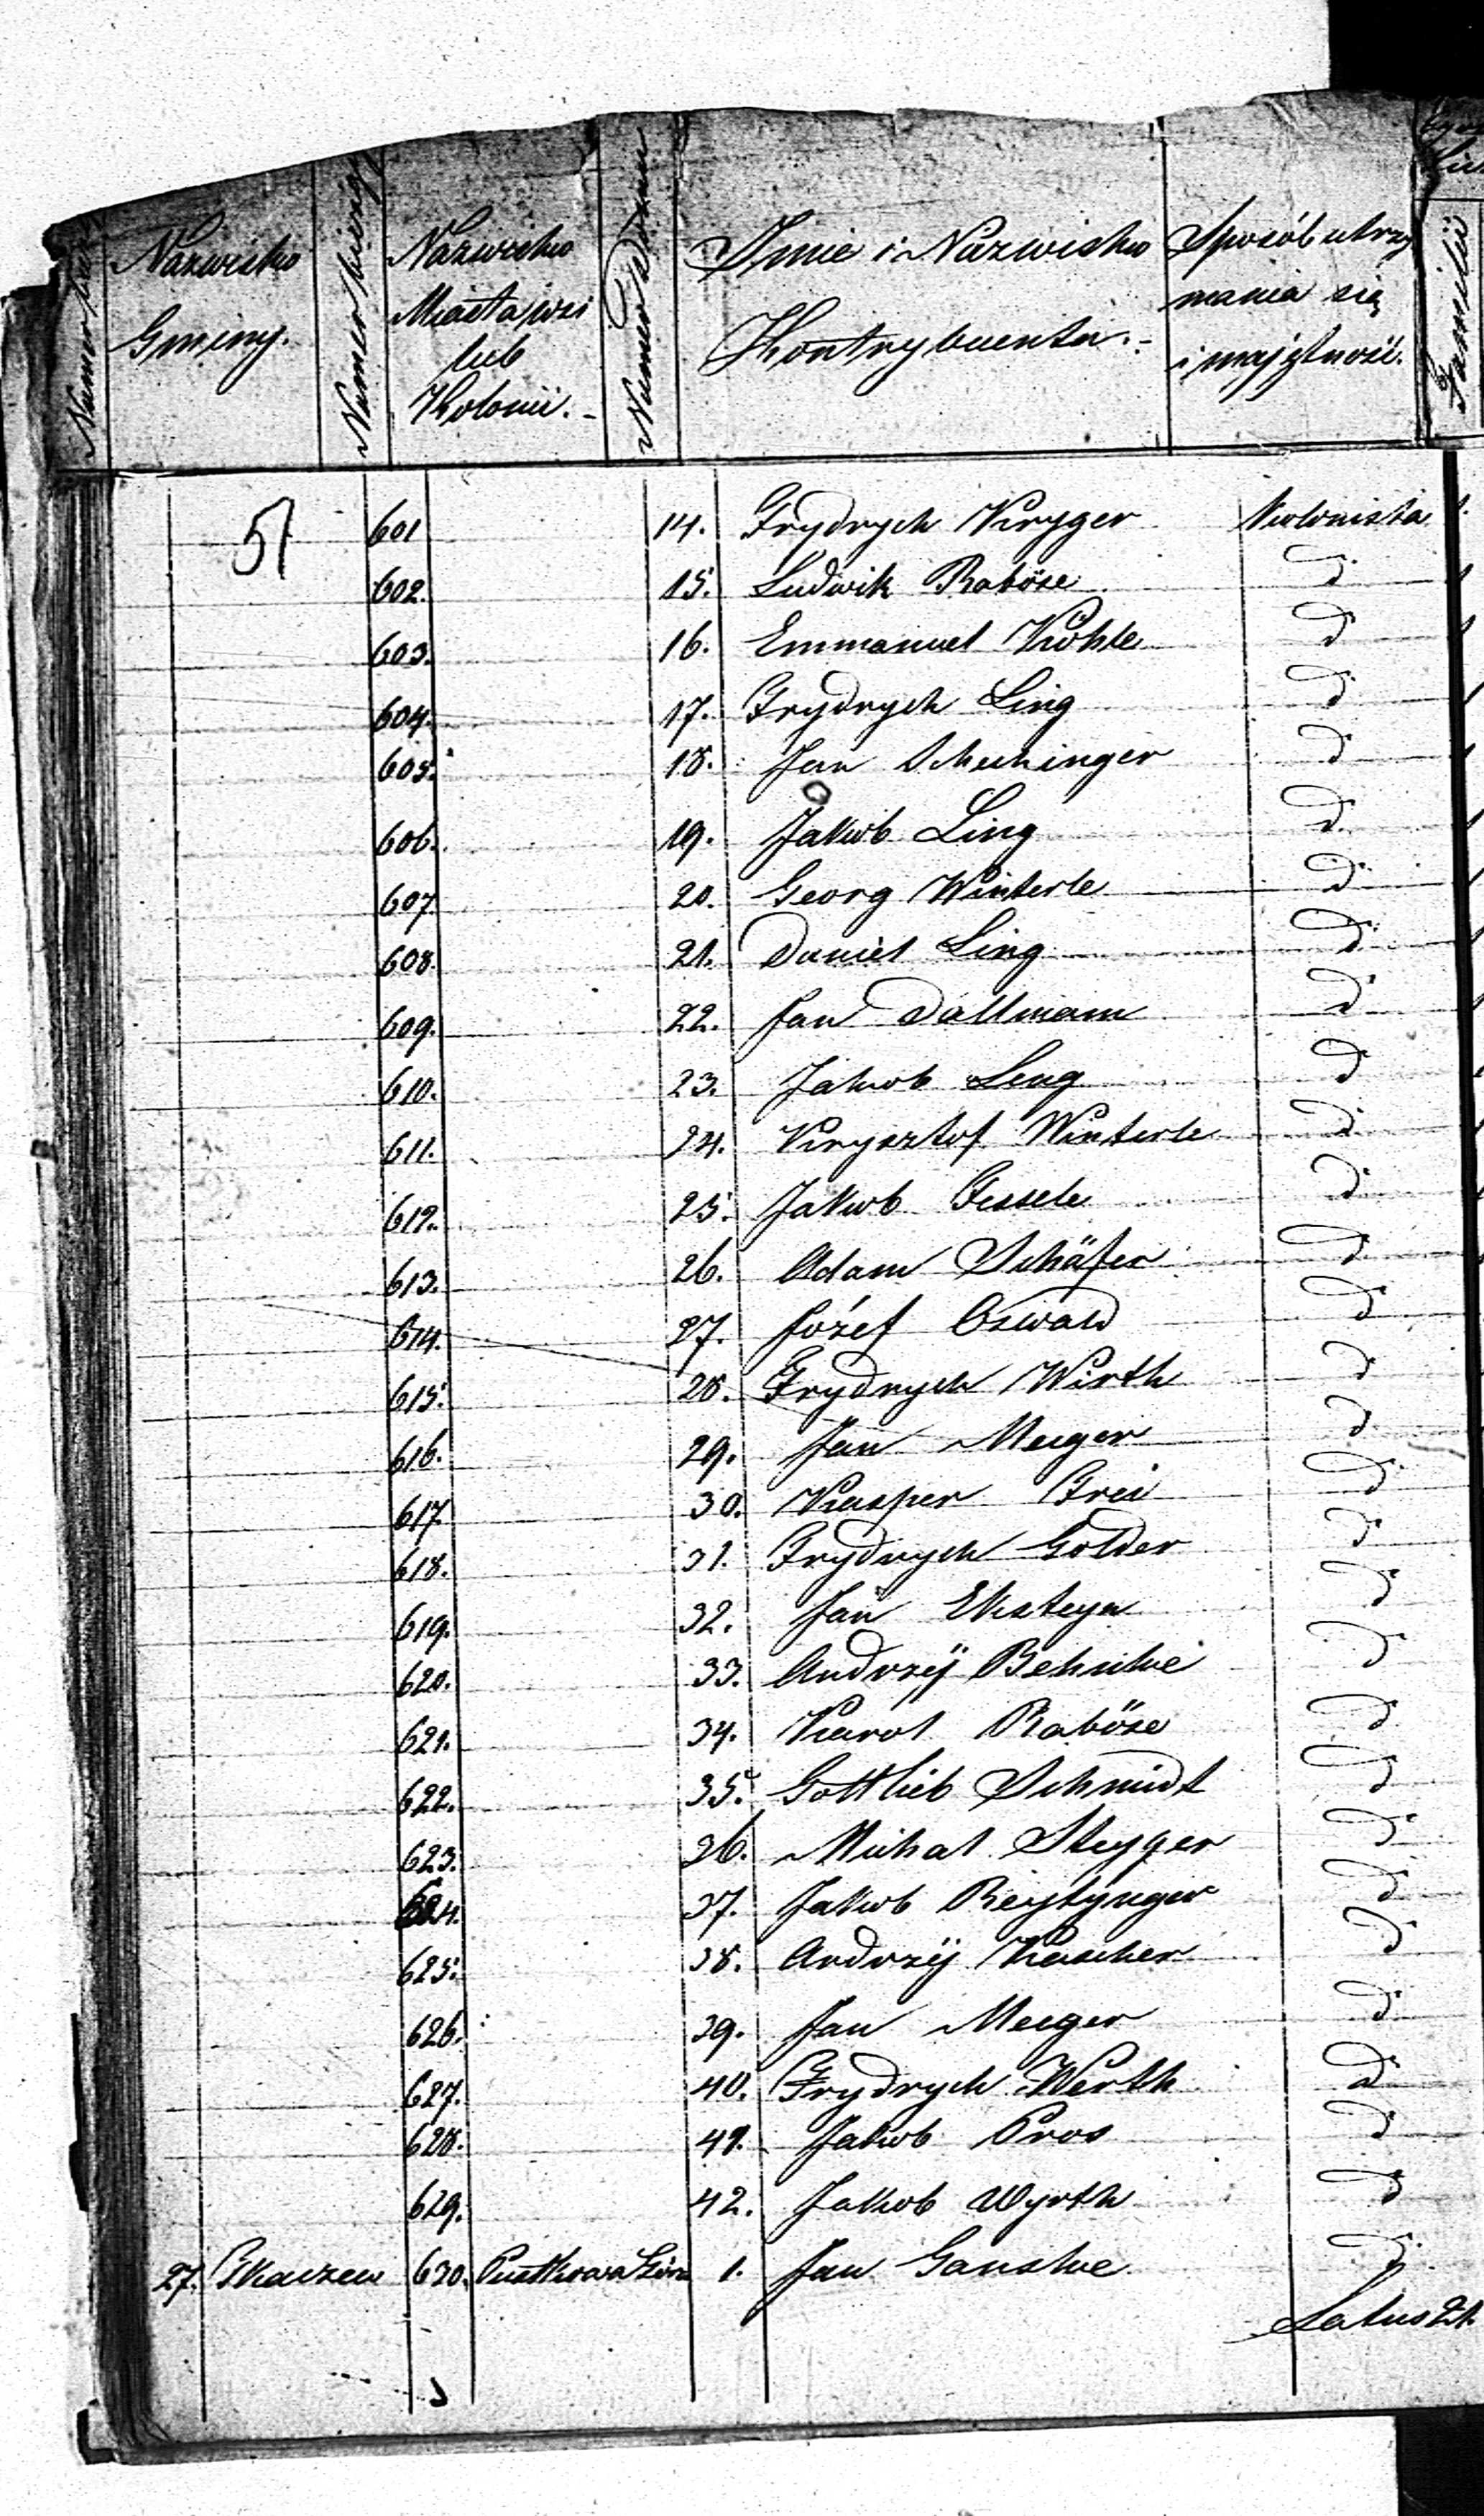 Nazwisko Gminy.
Numer bieżący
Nazwisko Miasta wsi lub Kolonii.
Numer Domu
Imie i Nazwisko Kontrybuenta.
Sposób utrzymania się i majętność.
Familii
51
601 14. Frydrych Kryger Kolonista
602. 15. Ludwik Raböse d
603. 16. Emmanuel Köhle d
604. 17. Frydrych Ling d
605. 18. Jan Schuninger d
606. 19. Jakob Ling d
607 20. Georg Winterle d
608. 21. Daniel Ling d
609. 22. Jan Dallmann d
610. 23. Jakob Leng d
611. 24. Krysztof Winterle d
612. 25. Jakob Fessele d
613. 26. Adam Schäfer d
614. 27. Józef Oswald d
615. 28. Frydrych Wirth d
616. 29. Jan Meiger d
617 30. Kasper Frei d
618. 31. Frydrych Golder d
619. 32. Jan Eksteyn d
620. 33. Andrzÿ Behnke d
621. 34. Karol Raböse d
622. 35. Gottlieb Schmidt d
623. 36. Michal Steyger d
624. 37. Jakob Reytynger d
625. 38. Andrzÿ Kascher d
626. 39. Jan Meiger d
627. 40. Frydrych Werth d
628. 41. Jakob Pros d
629. 42. Jakob Wyrth d
27. 630. Pustkowa Góra 1. Jan Ganske d
Latus